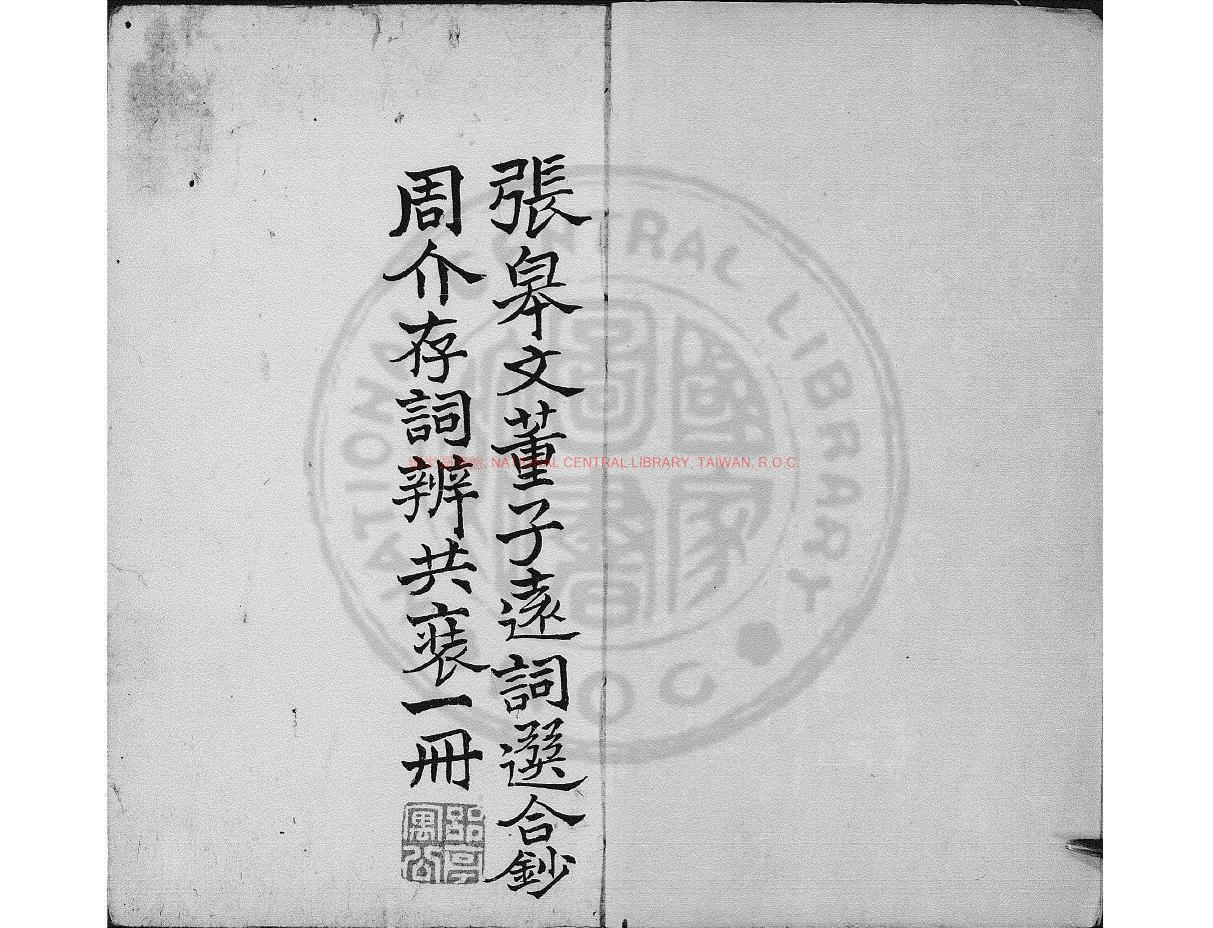 張皋文董子遠詞選合鈔
周介存詞辨共裝一冊
NATIONAL CENTRAL LIBRARY
R O C
國家圖書館, NATIONAL CENTRAL LIBRARY, TAIWAN, R.O.C.